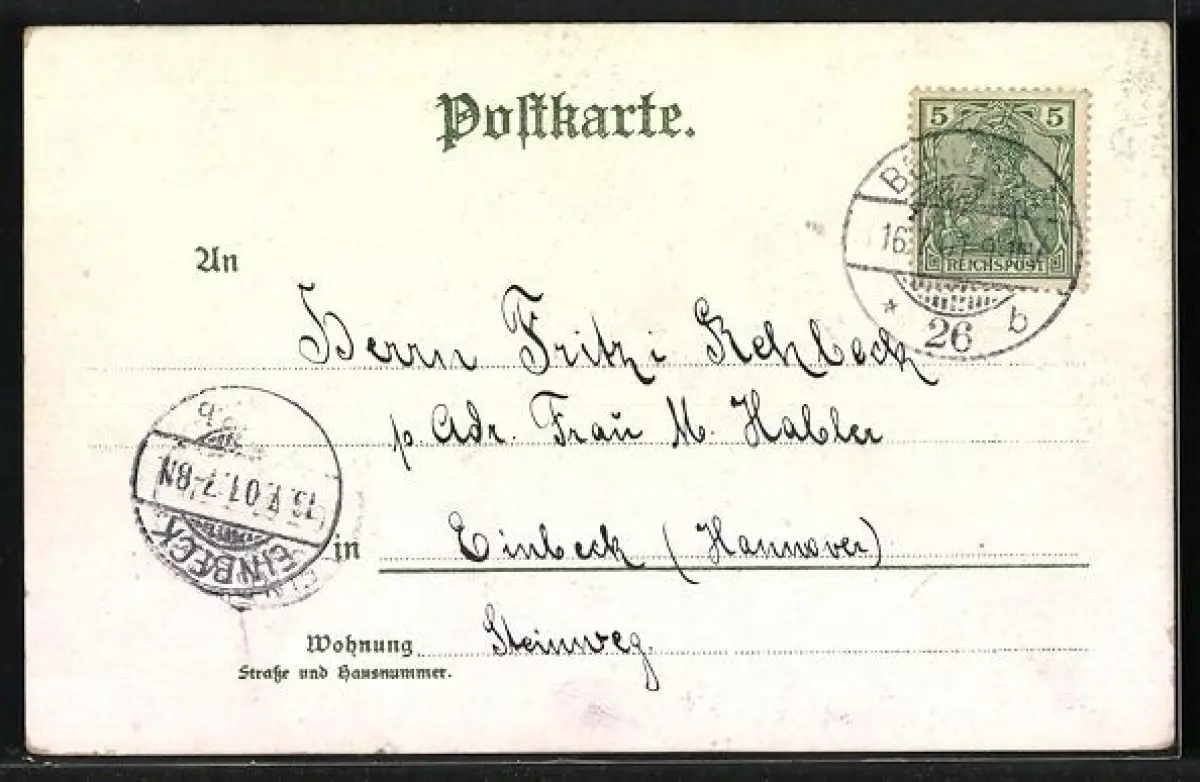 Postkarte.
5 5
REICHSPOST
16.7.01
* 26 b
An
Herrn Fritz Rehbeck
p. Adr. Frau M. Habler
in Einbeck (Hannover)
Wohnung Steinweg.
Straße und Hausnummer.
EINBECK
.7.01.7-8N
b